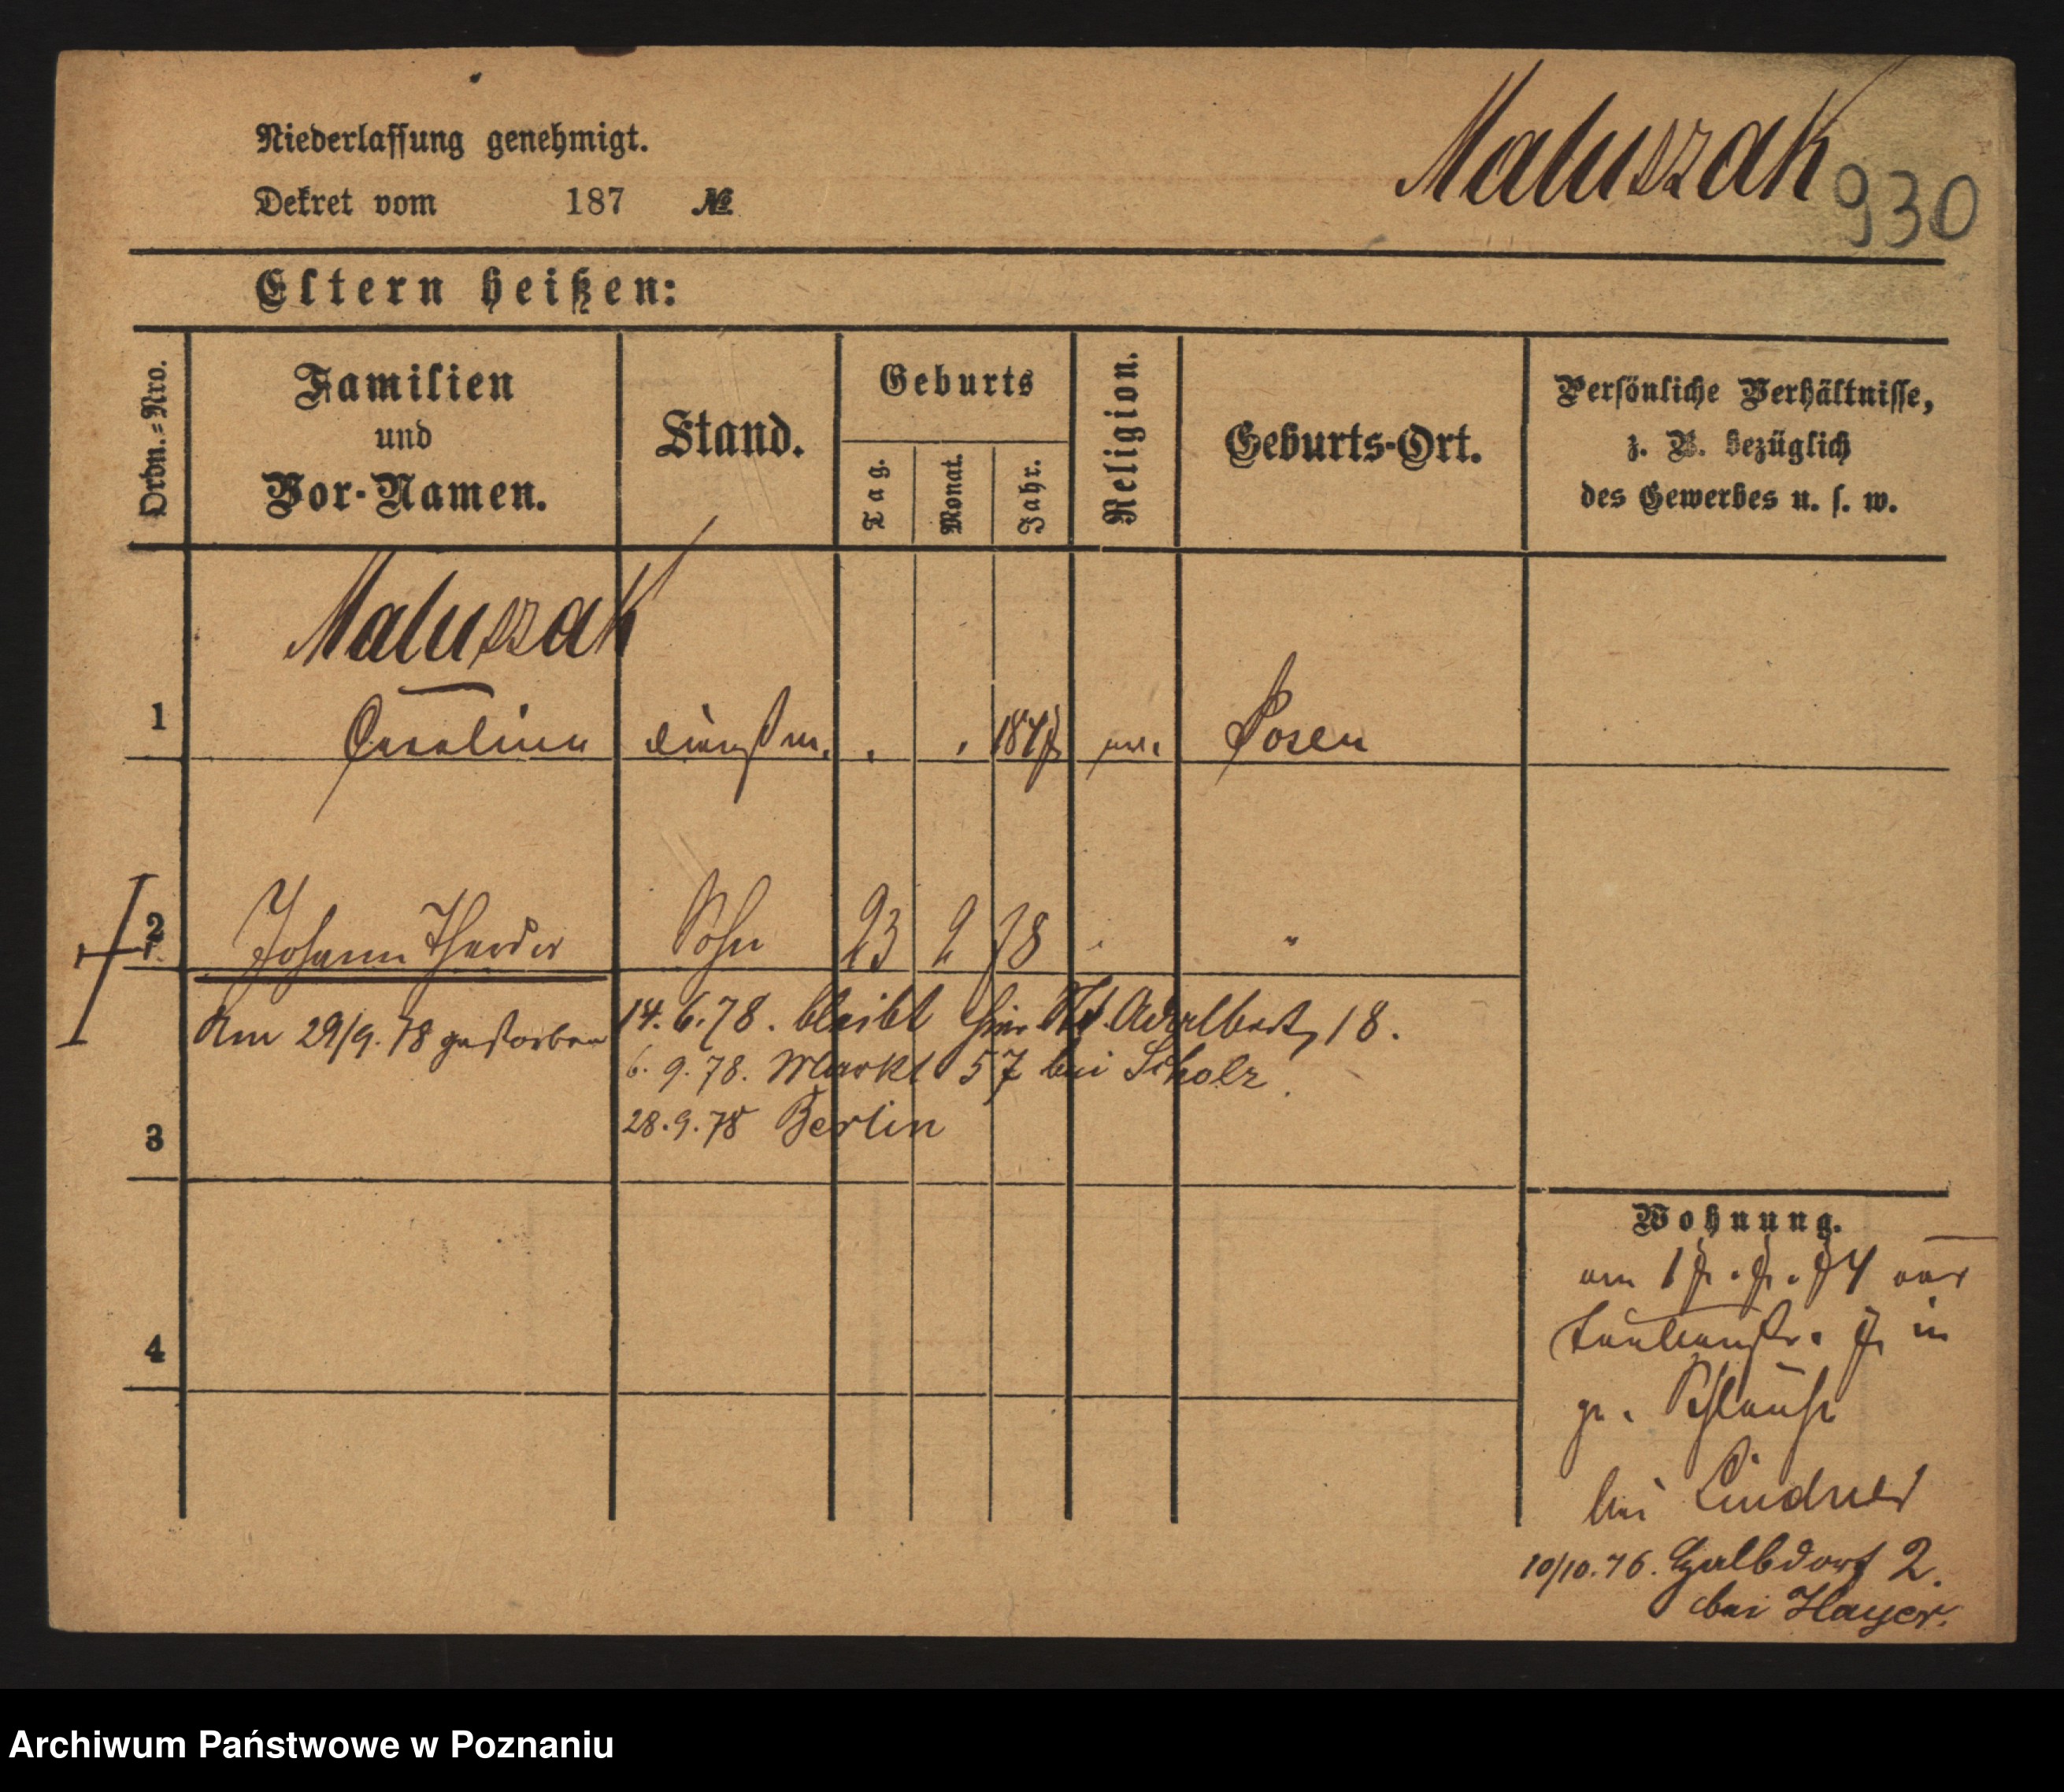 Niederlassung genehmigt.
Dekret vom 187 №
Matuszak 930
Eltern heißen:
Ordn.=Nro.
Familien
und
Vor-Namen.
Stand.
Geburts
Tag.
Monat.
Jahr.
Religion.
Geburts-Ort.
Persönliche Verhältnisse,
z. B. bezüglich
des Gewerbes u. s. w.
Matuszak
1 Carolina Posen
2 Johann Sohn 23 2 78 "
Am 29/9. 78 gestorben
14. 6. 78. bleibt hier St. Adalbert, 18.
6. 9. 78. Markt 57 bei Scholz
28. 9. 78 Berlin
3
4
Wohnung.
bei Lindner
10/10. 76. Halbdorf 2.
bei Hayer.
Archiwum Państwowe w Poznaniu